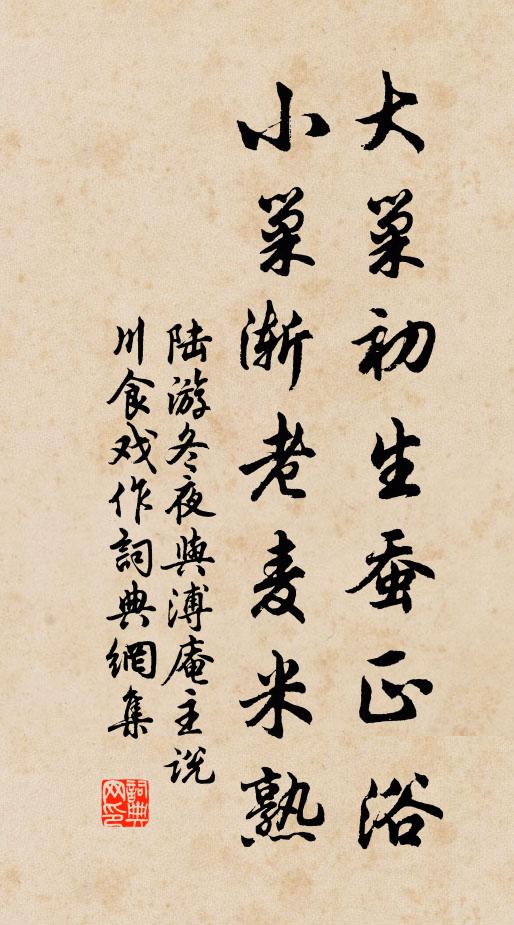 大巢初生蚕正浴
小巢渐老麦米熟
陆游冬夜與溥庵主说
川食戏作詞典網集
詞典
网印